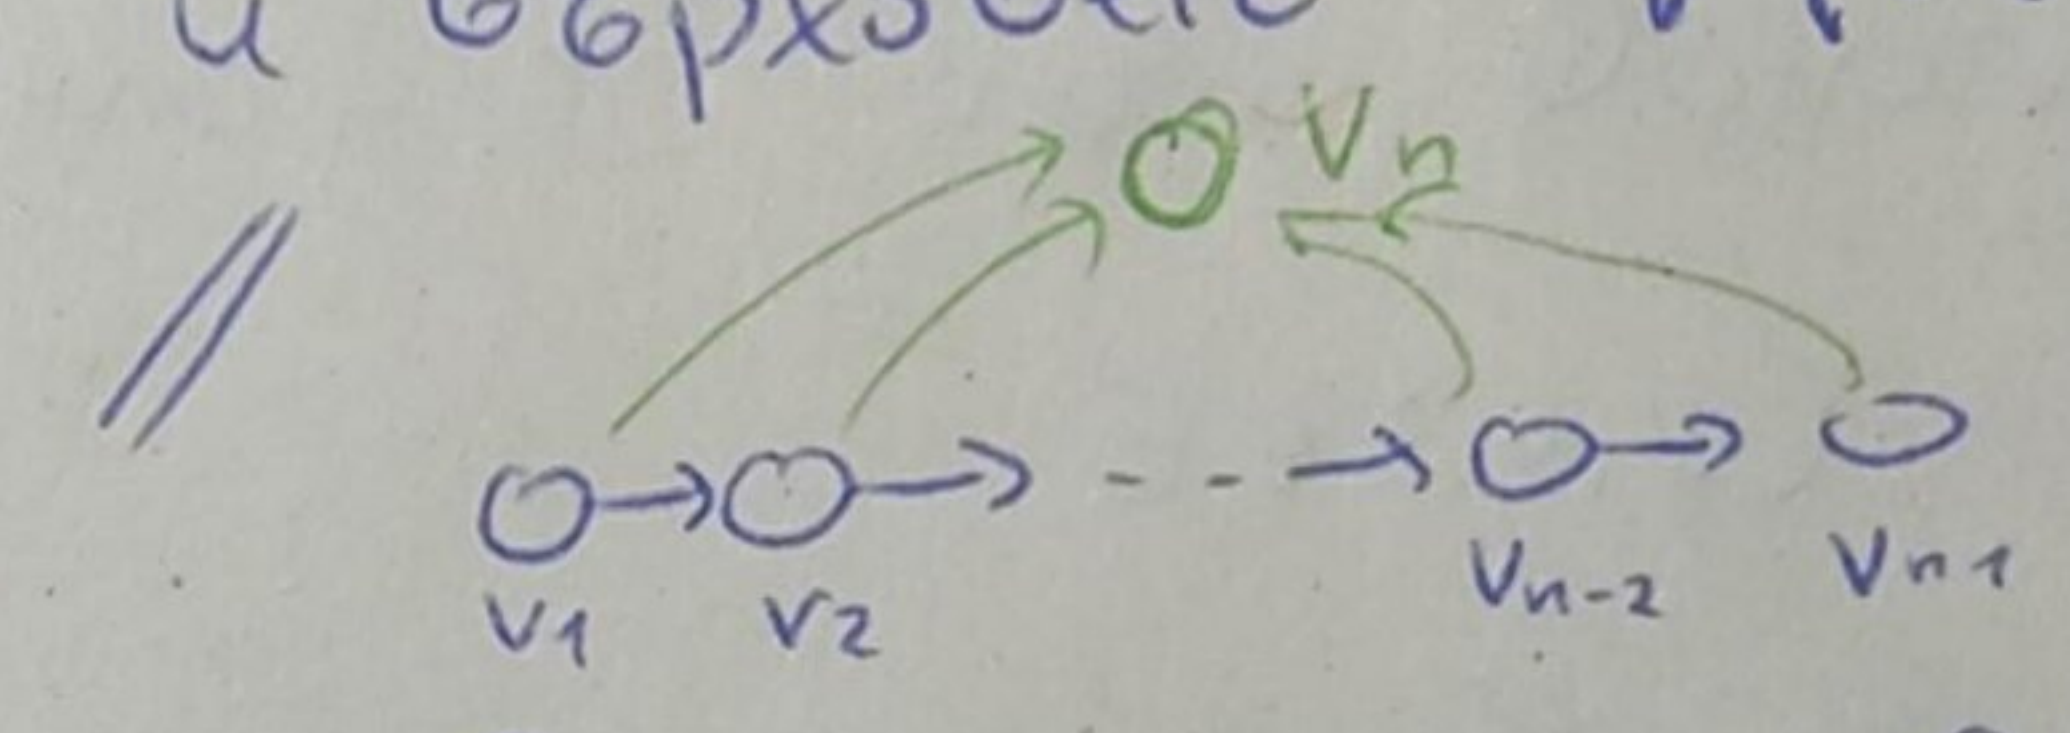 и
Vn
V1 V2 Vn-2 Vn1